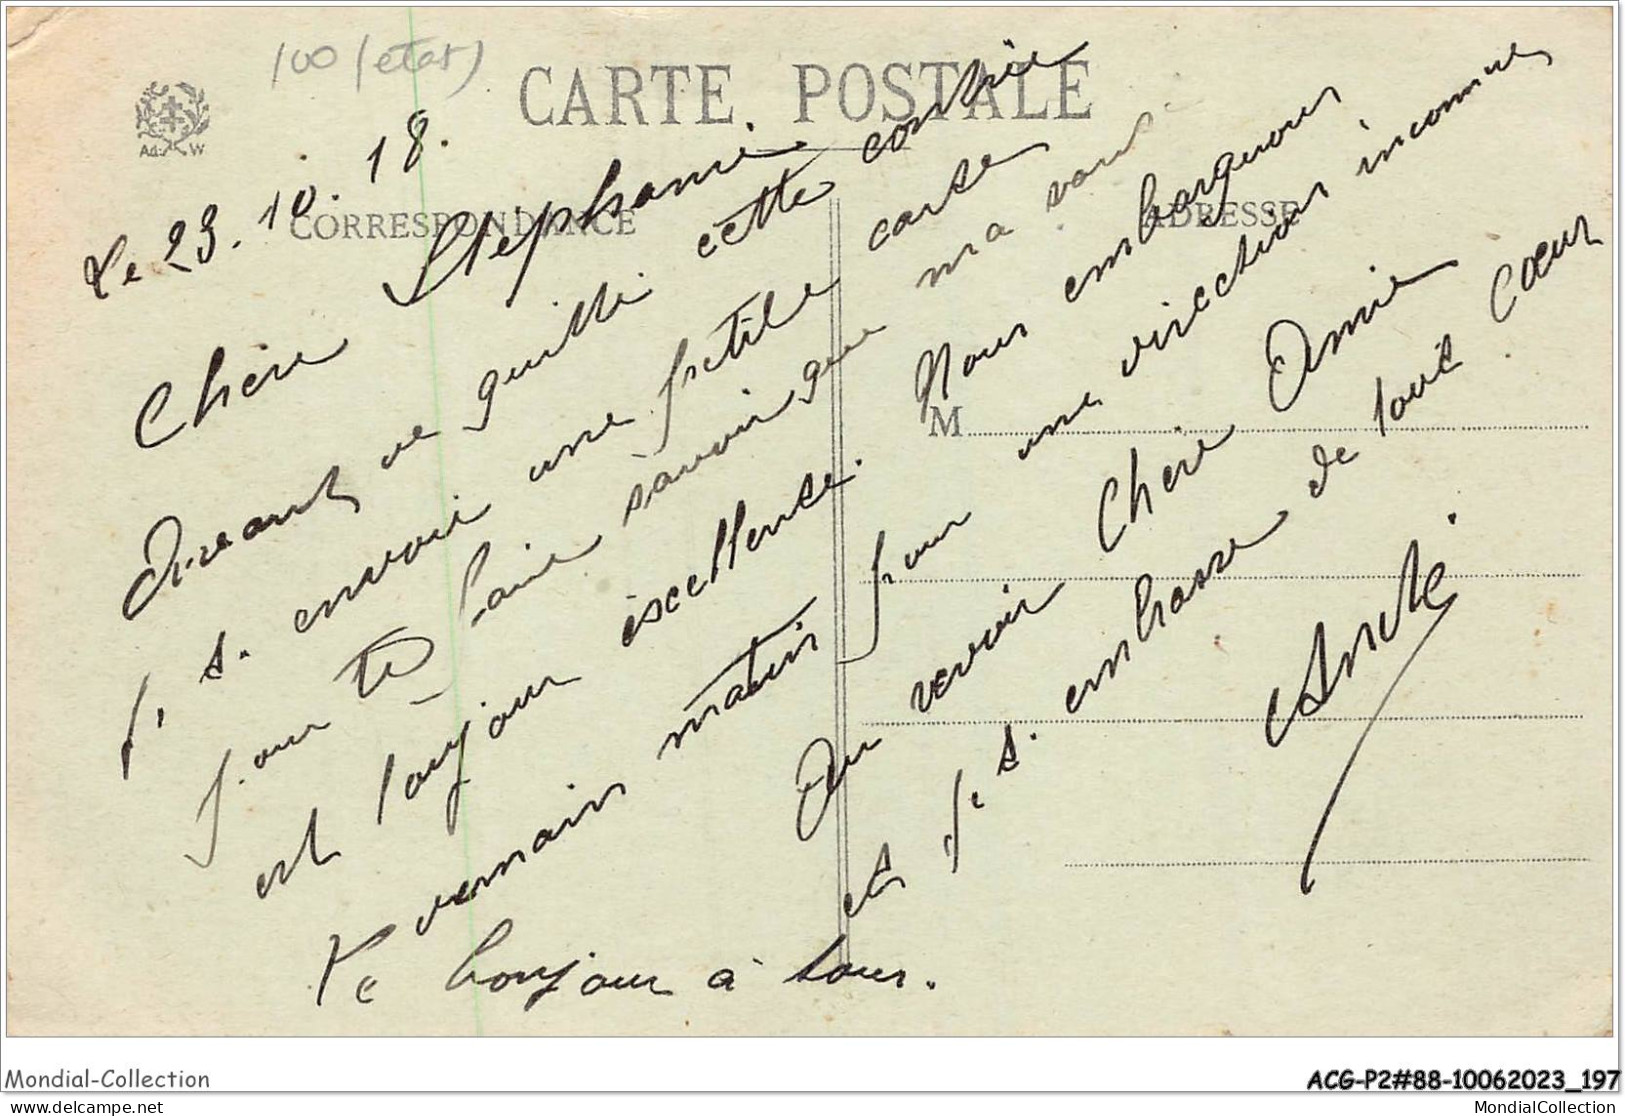 100 (état)
CARTE POSTALE
Ad. W
Le 23.10.18.
CORRESPONDANCE
ADRESSE
Chère Stéphanie.
Avant de quitté cette contrée
J. s. envoie une petite carte
pour te faire savoir que ma santé
est toujour excellente. Nous embarquons
demain matin pour une direction inconnue
Au revoir Chère Amie
et J. s. embrasse de tout Coeur
André.
Le bonjour à tous.
M
Mondial-Collection
ACG-P2#88-10062023_197
MondialCollection
MondialCollection